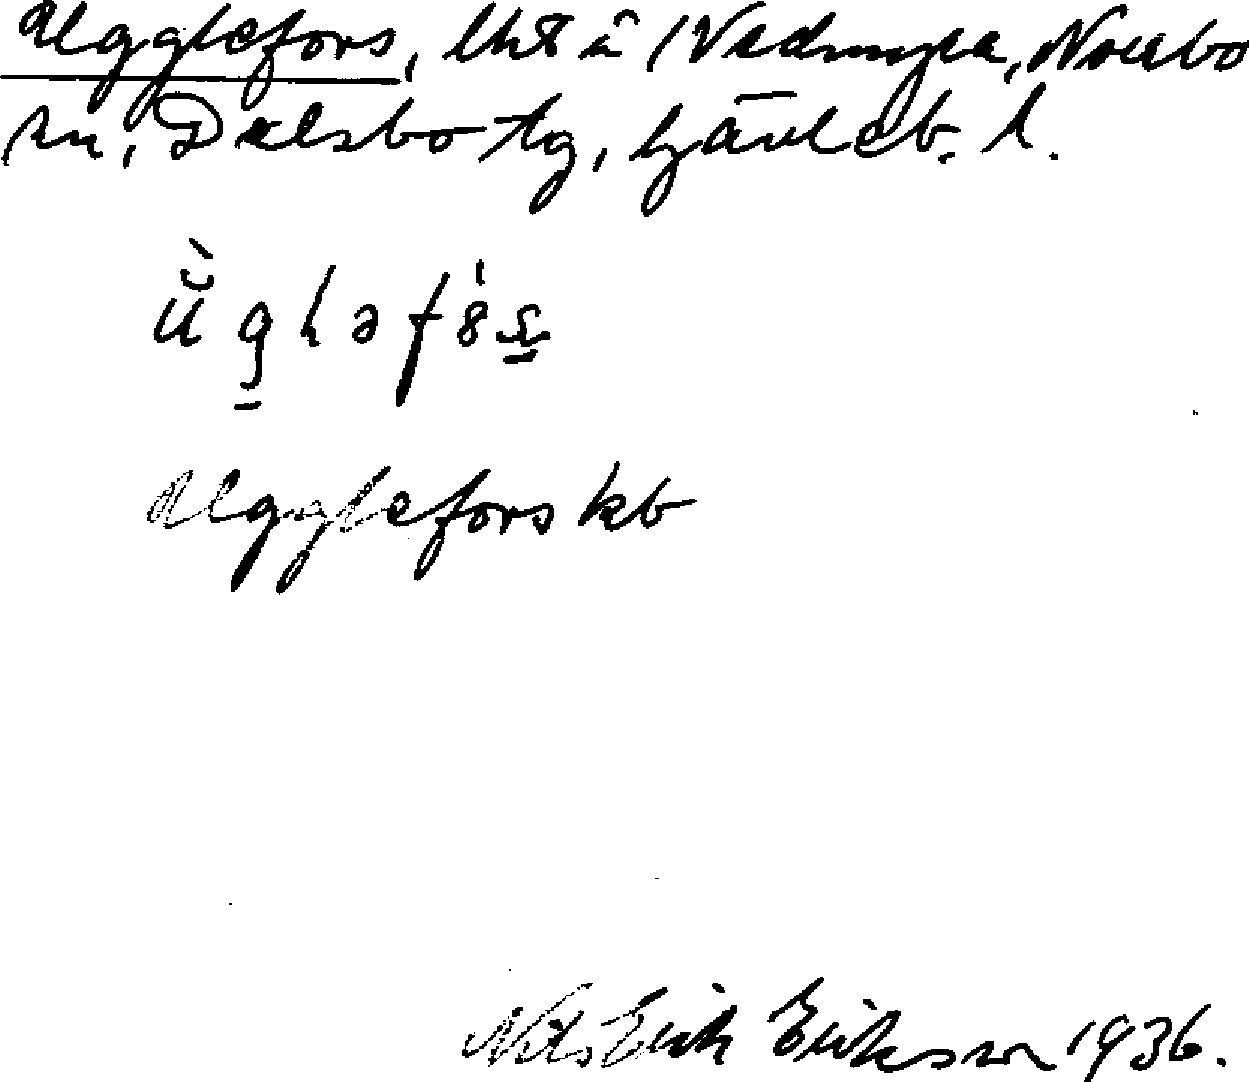 Ugglefors, lht i Vedmyra, Norrbo
sn, Delsbo tg, Gävleb. l.
Ugglefors kb
Nils Erik Eriksson 1936.